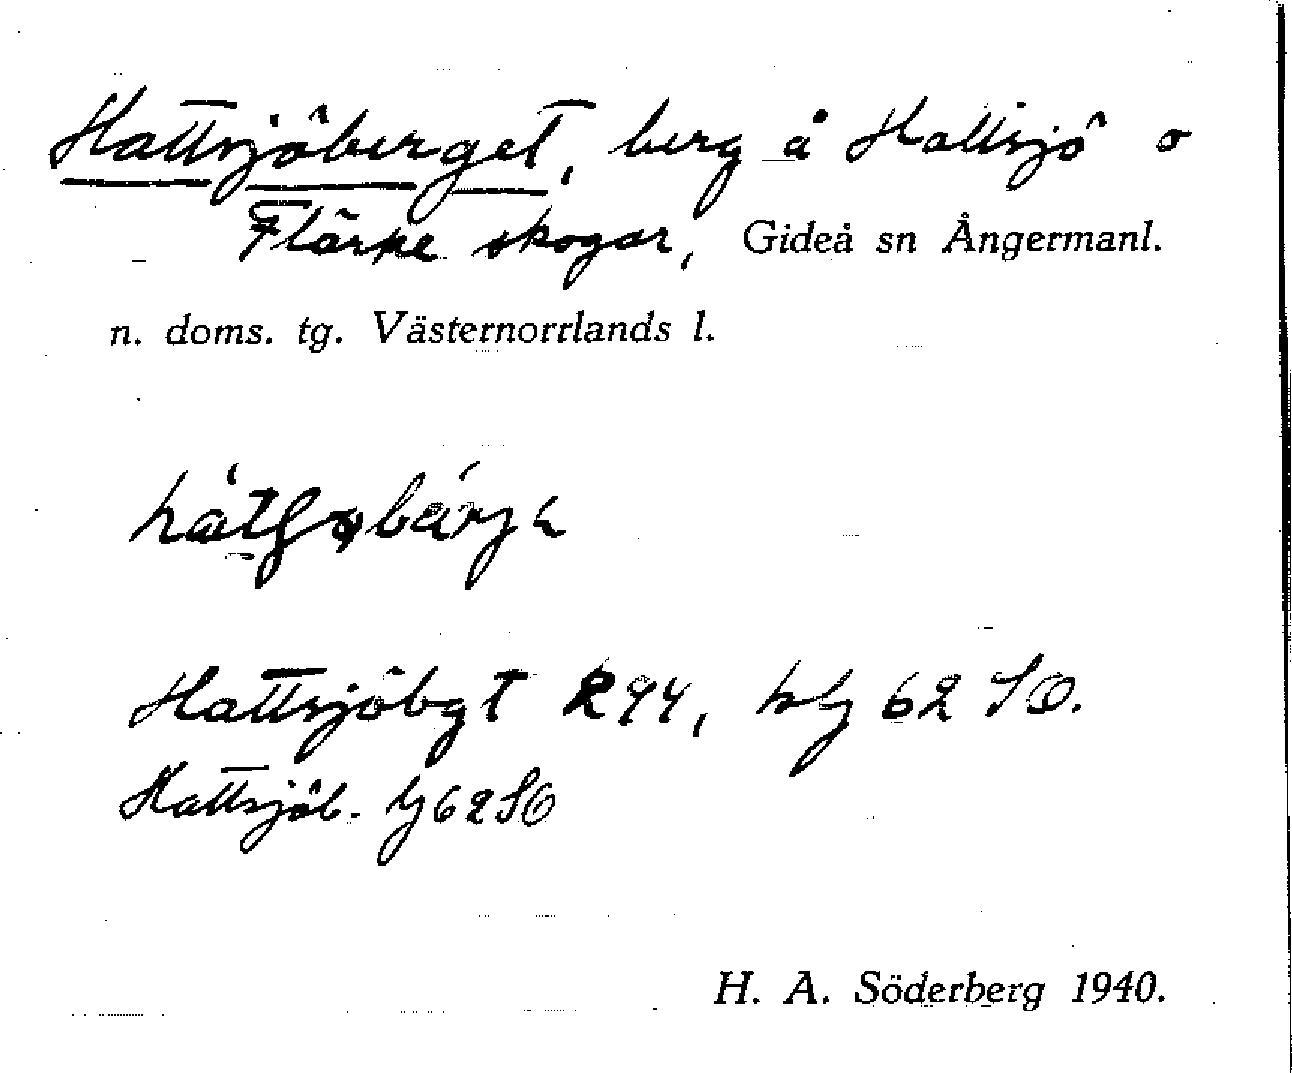 Hattsjöberget, berg å Hattsjö o
Flärke skogar, Gideå sn Ångermanl.
n. doms. tg. Västernorrlands l.
Hattsjöbgt R94, 62 SO.
Hattsjöb. 62 SO
H. A. Söderberg 1940.